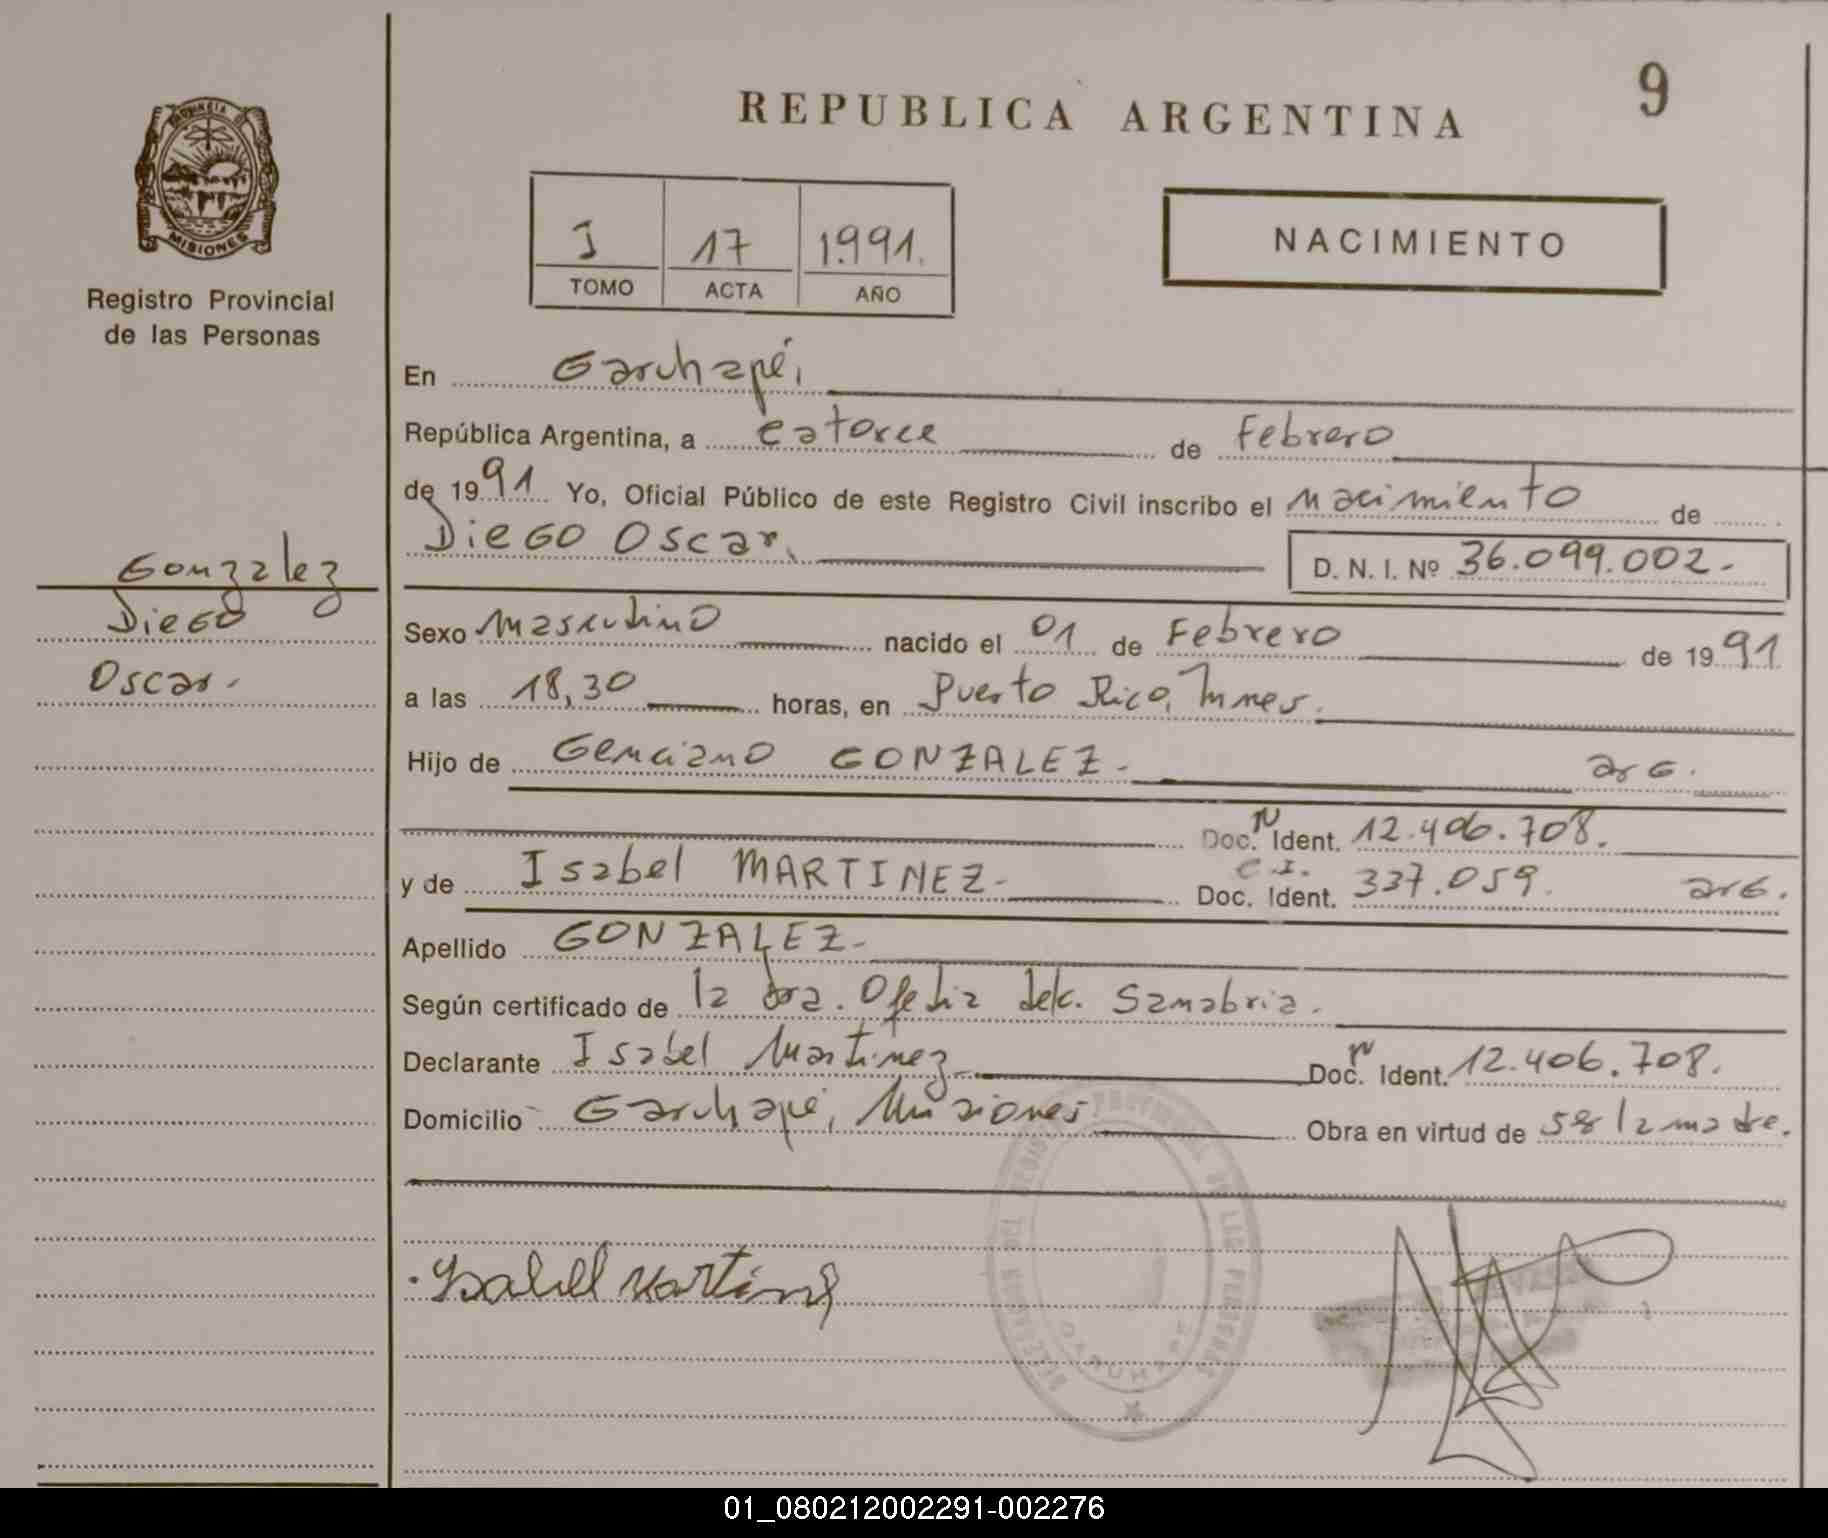 9
REPUBLICA ARGENTINA
PROVINCIA DE
MISIONES
Registro Provincial
de las Personas
I 17 1.991.
TOMO ACTA AÑO
NACIMIENTO
En Garuhapé,
República Argentina, a catorce de Febrero
de 1991 Yo, Oficial Público de este Registro Civil inscribo el nacimiento de
Diego Oscar.
D. N. I. Nº 36.099.002.-
Gonzalez
Diego
Oscar.
Sexo masculino nacido el 01 de Febrero de 1991
a las 18,30 horas, en Puerto Rico, Mnes.
Hijo de Genciano GONZALEZ.- arg.
Doc. N Ident. 12.406.708.
y de Isabel MARTINEZ.- C.I. Doc. Ident. 337.059. arg.
Apellido GONZALEZ.-
Según certificado de la dra. Ofelia delc. Sanabria.
Declarante Isabel Martinez.- Doc. N Ident. 12.406.708.
Domicilio Garuhapé, Misiones Obra en virtud de ser la madre.
Isabel Martinez
GARUHAPE
01_080212002291-002276